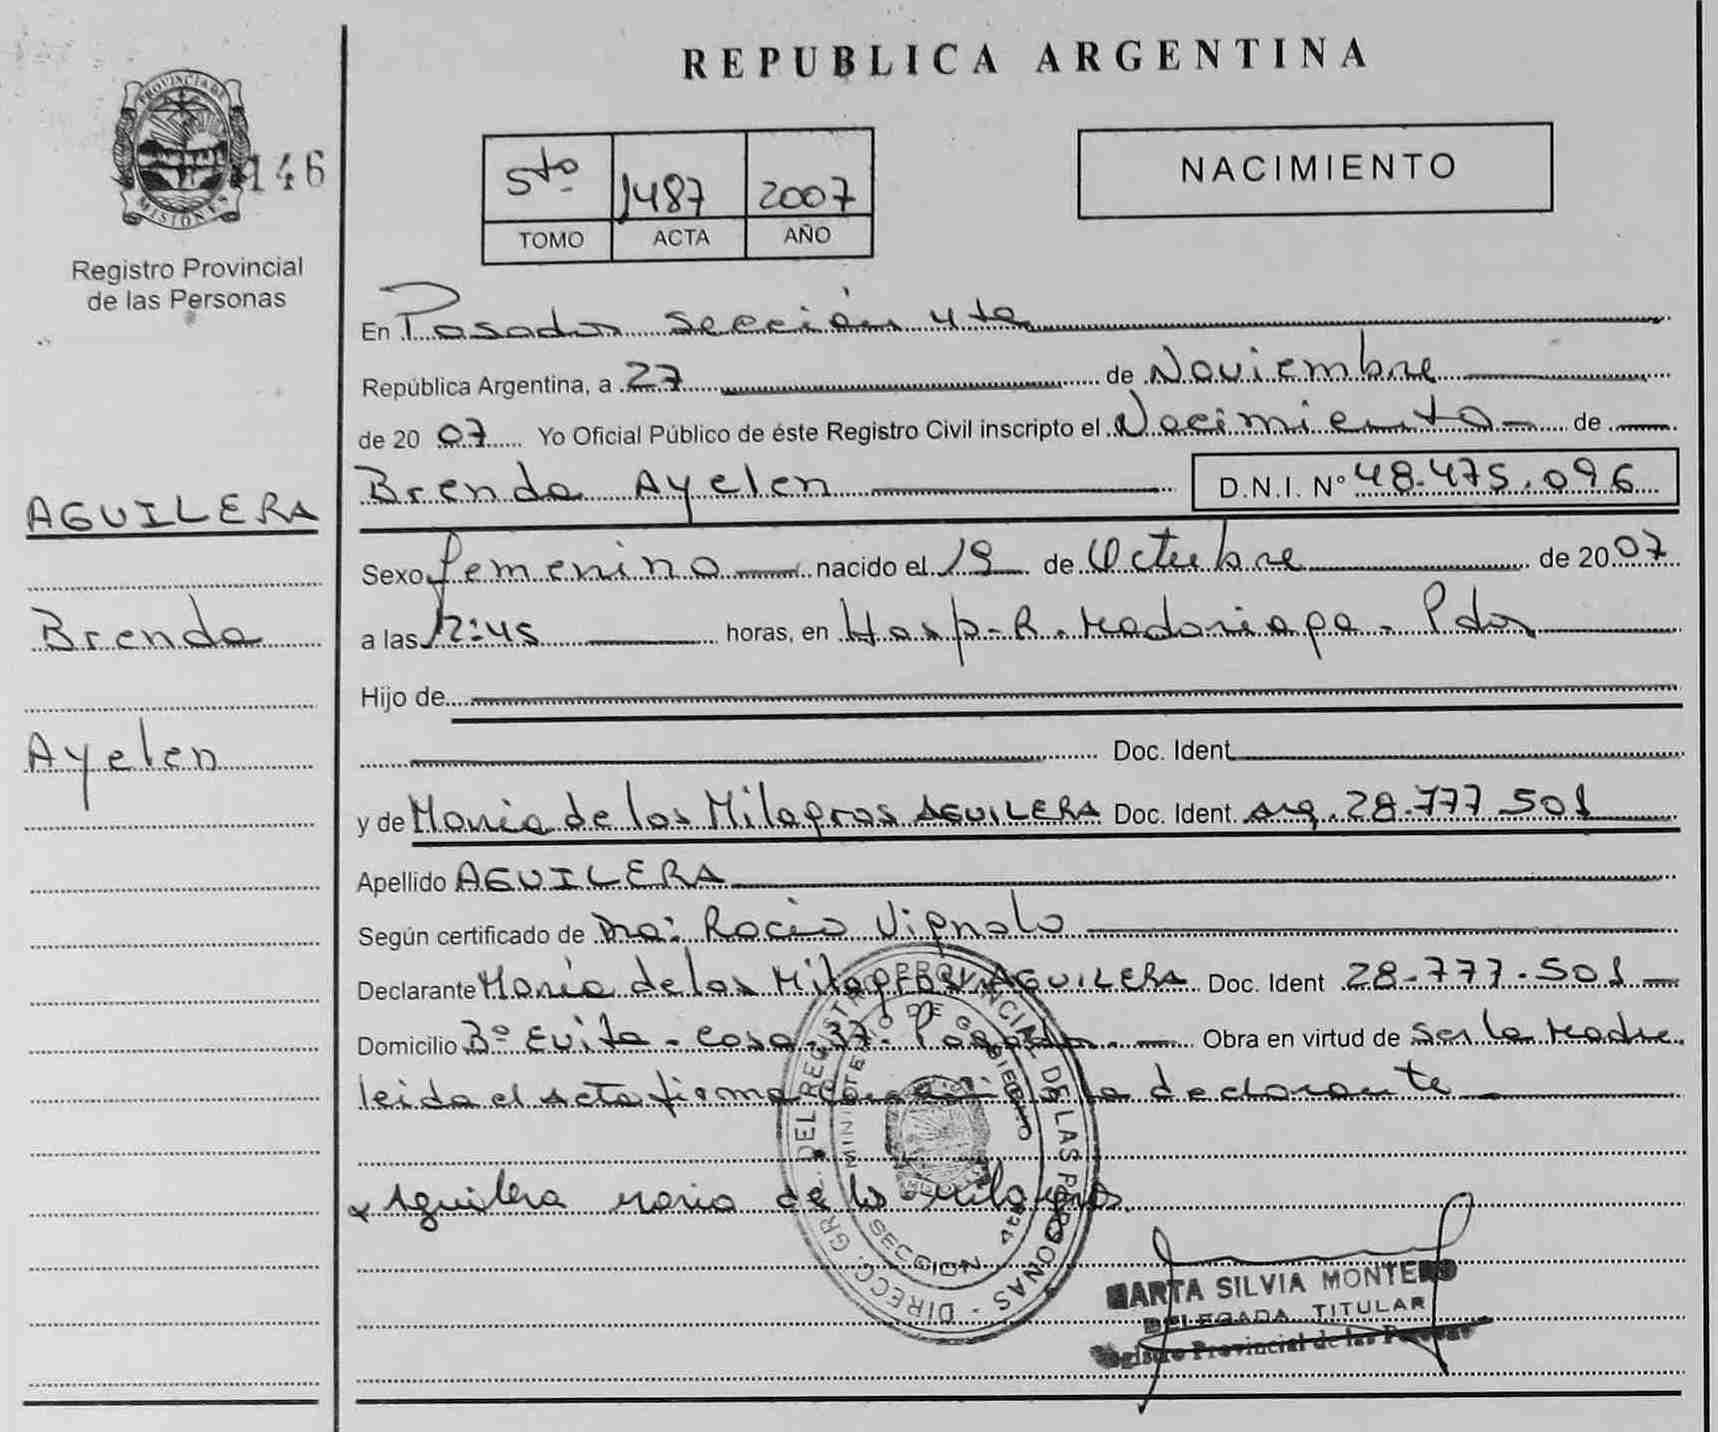 REPUBLICA ARGENTINA
PROVINCIA DE
MISIONES
146
Registro Provincial
de las Personas
5to 1487 2007
TOMO ACTA AÑO
NACIMIENTO
AGUILERA
Brenda
Ayelen
En Posadas Sección 4ta
República Argentina, a 27 de Noviembre
de 2007 Yo Oficial Público de éste Registro Civil inscripto el Nacimiento de
Brenda Ayelen D.N.I. Nº 48.475.096
Sexo femenino nacido el 19 de Octubre de 2007
a las 12:45 horas, en Hosp. R. Madariaga - Pdas
Hijo de
Doc. Ident
y de María de los Milagros AGUILERA Doc. Ident arg. 28.777.501
Apellido AGUILERA
Según certificado de Dra: Rocio Vignolo
Declarante María de los Milagros AGUILERA Doc. Ident 28.777.501
Domicilio Bº Evita - Casa - 37 - Posadas. Obra en virtud de ser la Madre
leida el acta firma la declarante
Aguilera maria de los milagros.
DIRECC. GRAL. DEL REGISTRO PROVINCIAL DE LAS PERSONAS
MINISTERIO DE GOBIERNO
SECCION 4ta
MARTA SILVIA MONTERO
DELEGADA TITULAR
Registro Provincial de las Personas